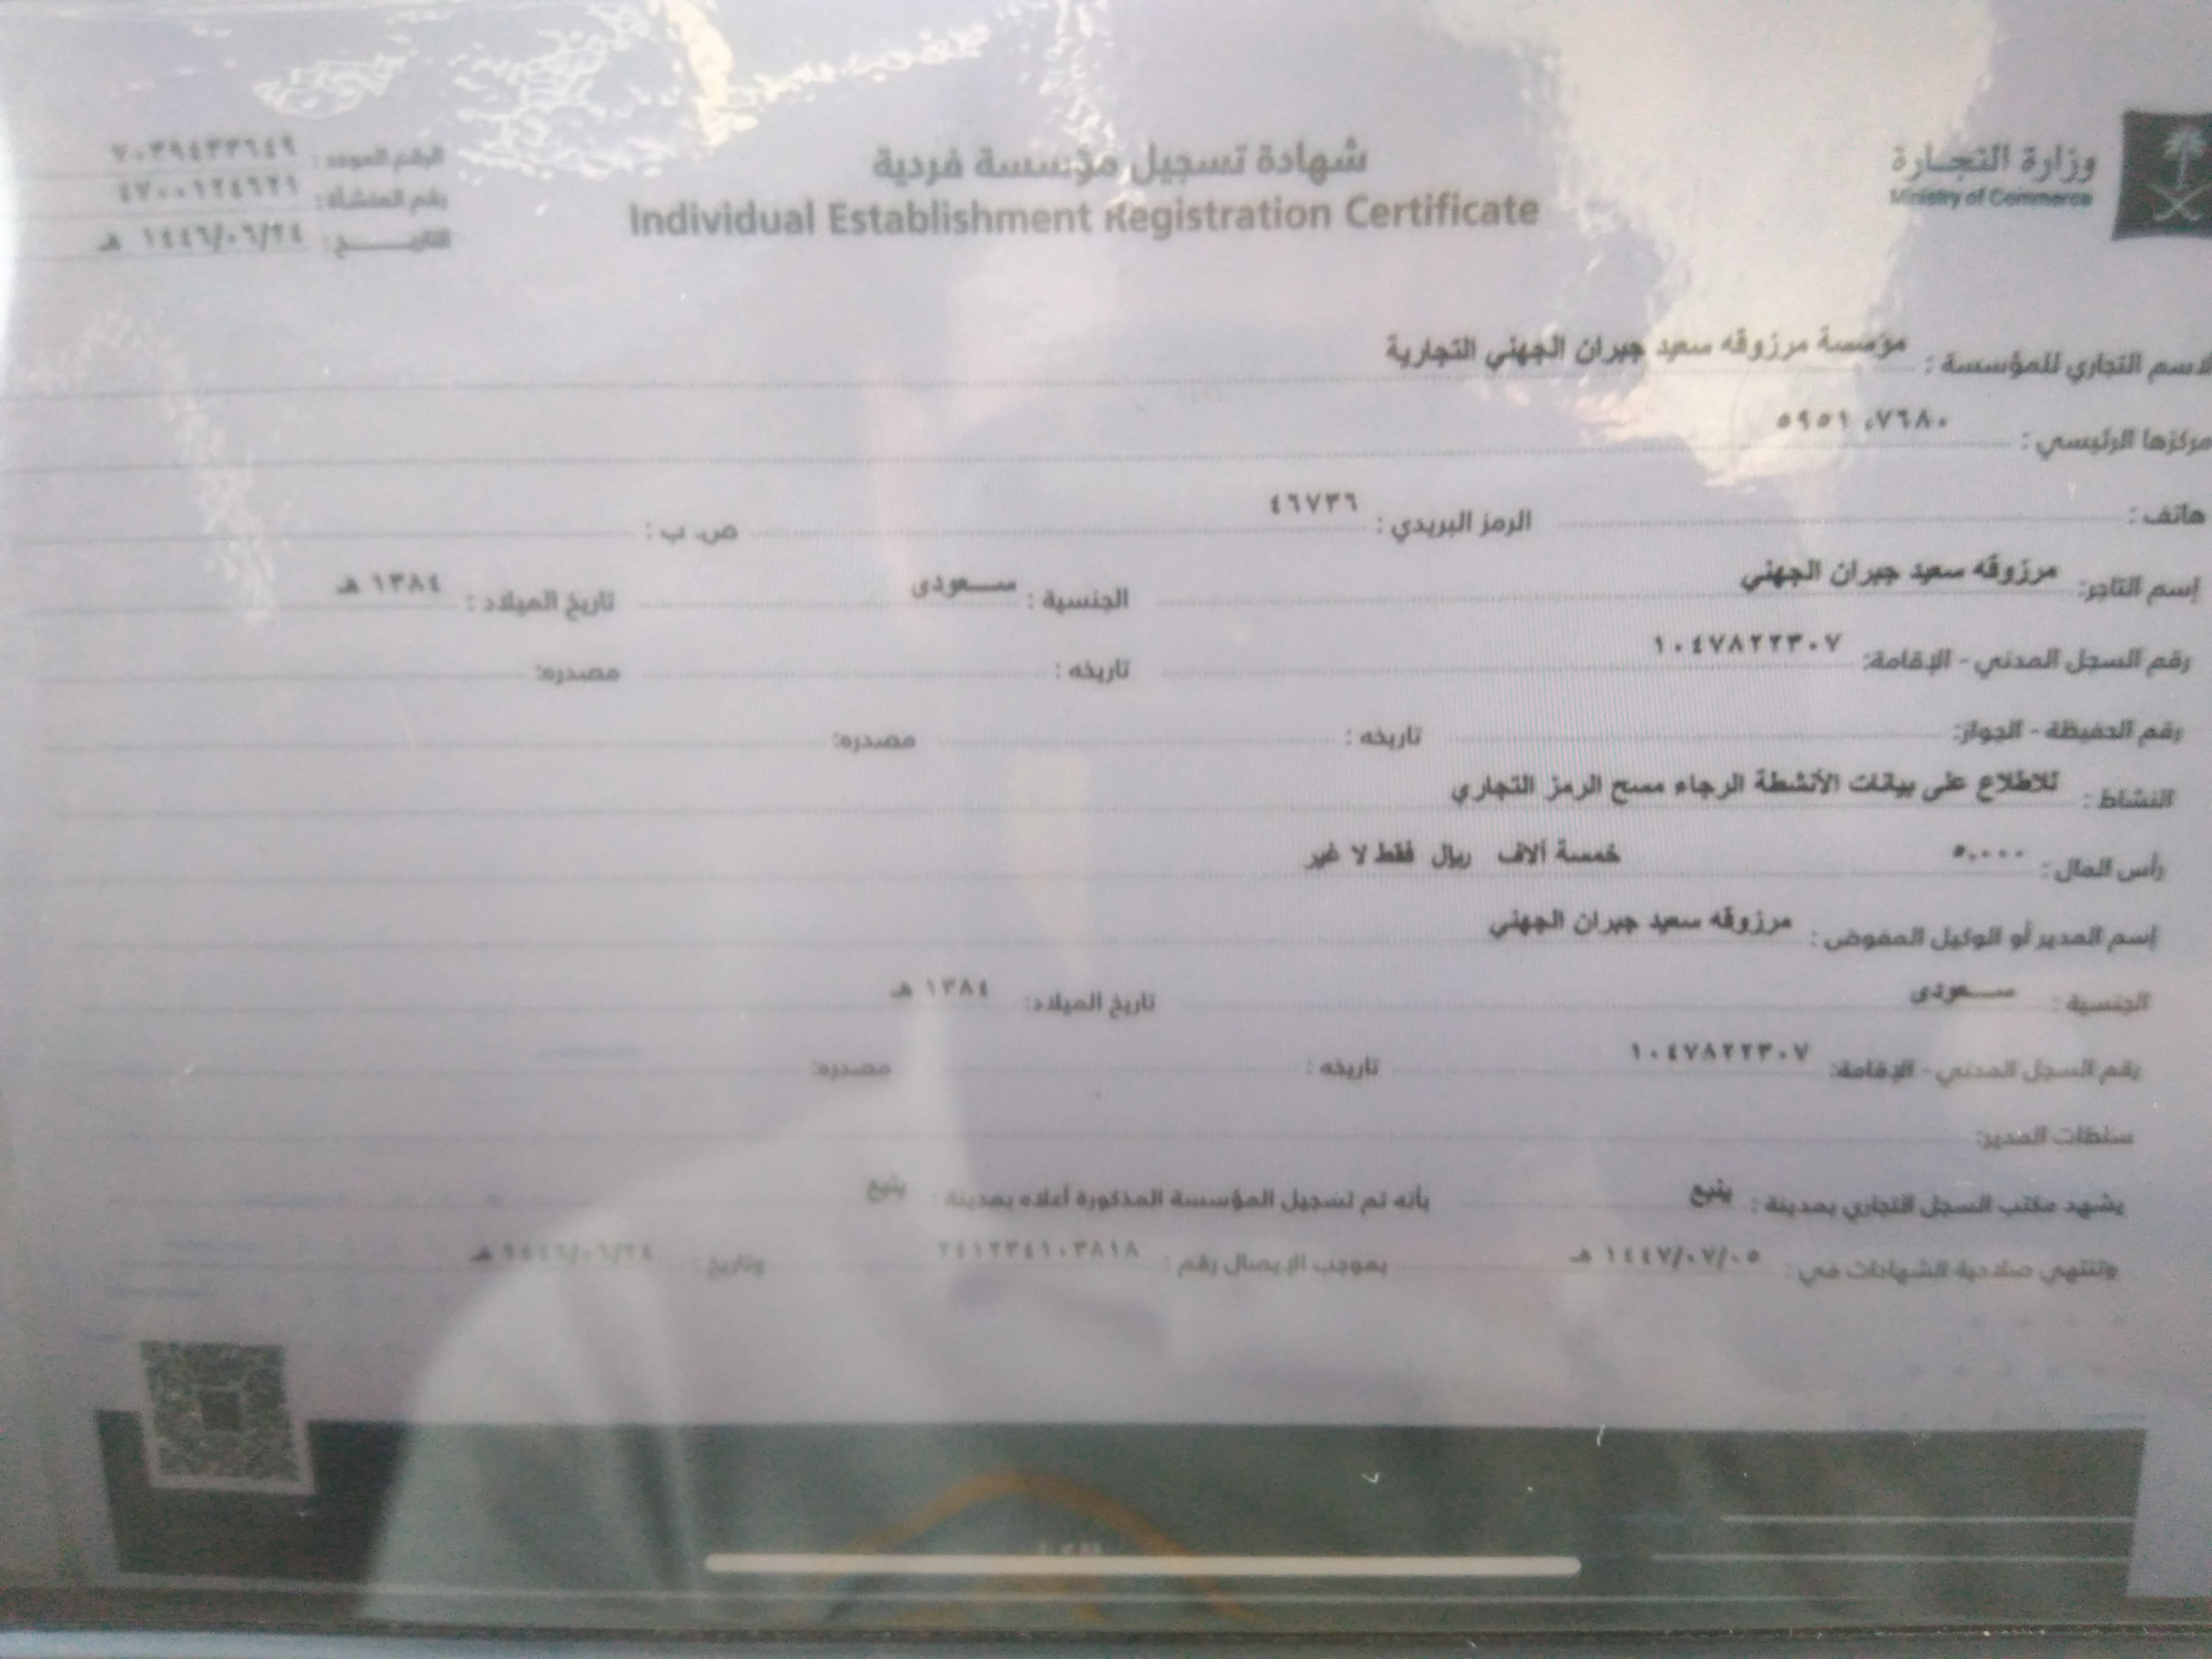 وزارة التجارة
Ministry of Commerce
شهادة تسجيل مؤسسة فردية
Individual Establishment Registration Certificate
الرقم الموحد : ٧٠٣٩٤٣٣٦٤٩
رقم المنشأة : ٤٧٠٠١٢٤٦٢١
التاريـــــخ : ١٤٤٦/٠٦/٢٤ هـ
الاسم التجاري للمؤسسة : مؤسسة مرزوقه سعيد جبران الجهني التجارية
مركزها الرئيسي : ٥٩٥١ ،٧٦٨٠
هاتف : الرمز البريدي : ٤٦٧٣٦ ص. ب :
إسم التاجر: مرزوقه سعيد جبران الجهني الجنسية : ســـعودى تاريخ الميلاد : ١٣٨٤ هـ
رقم السجل المدني - الإقامة: ١٠٤٧٨٢٢٣٠٧ تاريخه : مصدره:
رقم الحفيظة - الجواز: تاريخه : مصدره:
النشاط : للاطلاع على بيانات الأنشطة الرجاء مسح الرمز التجاري
رأس المال : ٥,٠٠٠ خمسة آلاف ريال فقط لا غير
إسم المدير أو الوكيل المفوض : مرزوقه سعيد جبران الجهني
الجنسية : ســـعودى تاريخ الميلاد: ١٣٨٤ هـ
رقم السجل المدني - الإقامة: ١٠٤٧٨٢٢٣٠٧ تاريخه : مصدره:
سلطات المدير:
يشهد مكتب السجل التجاري بمدينة : ينبع بأنه تم تسجيل المؤسسة المذكورة أعلاه بمدينة : ينبع
وتنتهي صلاحية الشهادات في : ١٤٤٧/٠٧/٠٥ هـ بموجب الإيصال رقم : ٢٤١٢٣٤١٠٣٨١٨ وتاريخ : ١٤٤٦/٠٦/٢٤ هـ